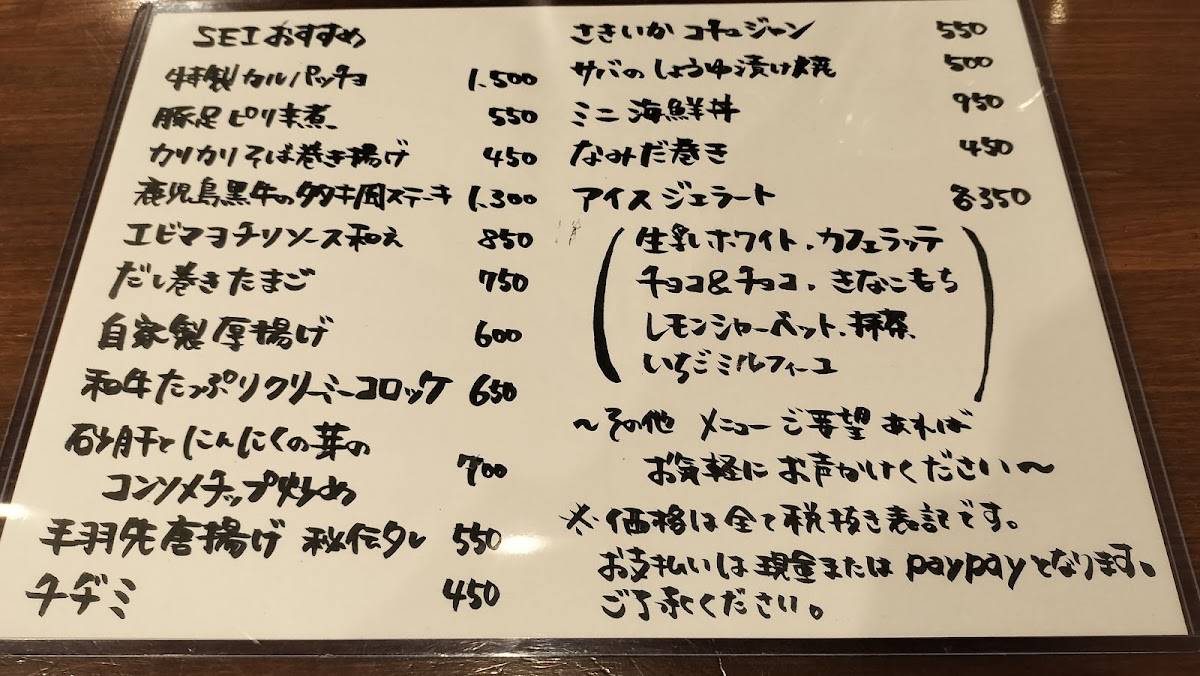 SEIおすすめ
特製カルパッチョ 1,500
豚足ピリ辛煮 550
カリカリそば巻き揚げ 450
鹿児島黒牛のタタキ風ステーキ 1,300
エビマヨチリソース和え 850
だし巻きたまご 750
自家製厚揚げ 600
和牛たっぷりクリーミーコロッケ 650
砂肝とにんにくの芽の
コンソメチップ炒め 700
手羽先唐揚げ 秘伝タレ 550
チヂミ 450
さきいかコチュジャン 550
サバのしょうゆ漬け焼 500
ミニ海鮮丼 950
なみだ巻き 450
アイスジェラート 各350
(生乳ホワイト、カフェラッテ
チョコ&チョコ、きなこもち
レモンシャーベット、抹茶
いちごミルフィーユ)
〜その他 メニューご要望あれば
お気軽にお声かけください〜
※価格は全て税抜き表記です。
お支払いは現金またはpaypayとなります。
ご了承ください。